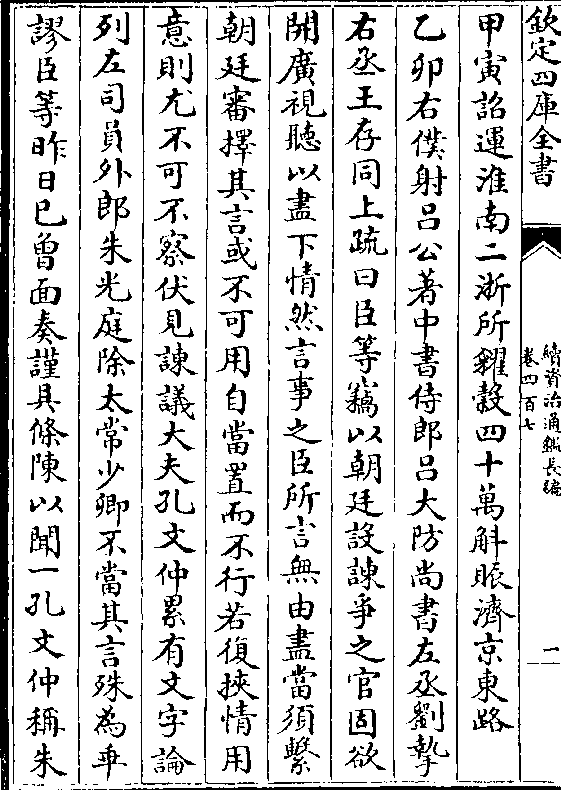 欽定四庫全書
續資治通鑑長編
卷四百七
一
甲寅詔運淮南二浙所糴糓四十萬斛賑濟京東路
乙卯右僕射吕公著中書侍郎吕大防尚書左丞劉摯
右丞王存同上疏曰臣等竊以朝廷設諫爭之官固欲
開廣視聽以盡下情然言事之臣所言無由盡當須繫
朝廷審擇其言或不可用自當置而不行若復挾情用
意則尤不可不察伏見諫議大夫孔文仲累有文字論
列左司員外郎朱光庭除太常少卿不當其言殊為乖
謬臣等昨日已曾面奏謹具條陳以聞一孔文仲稱朱